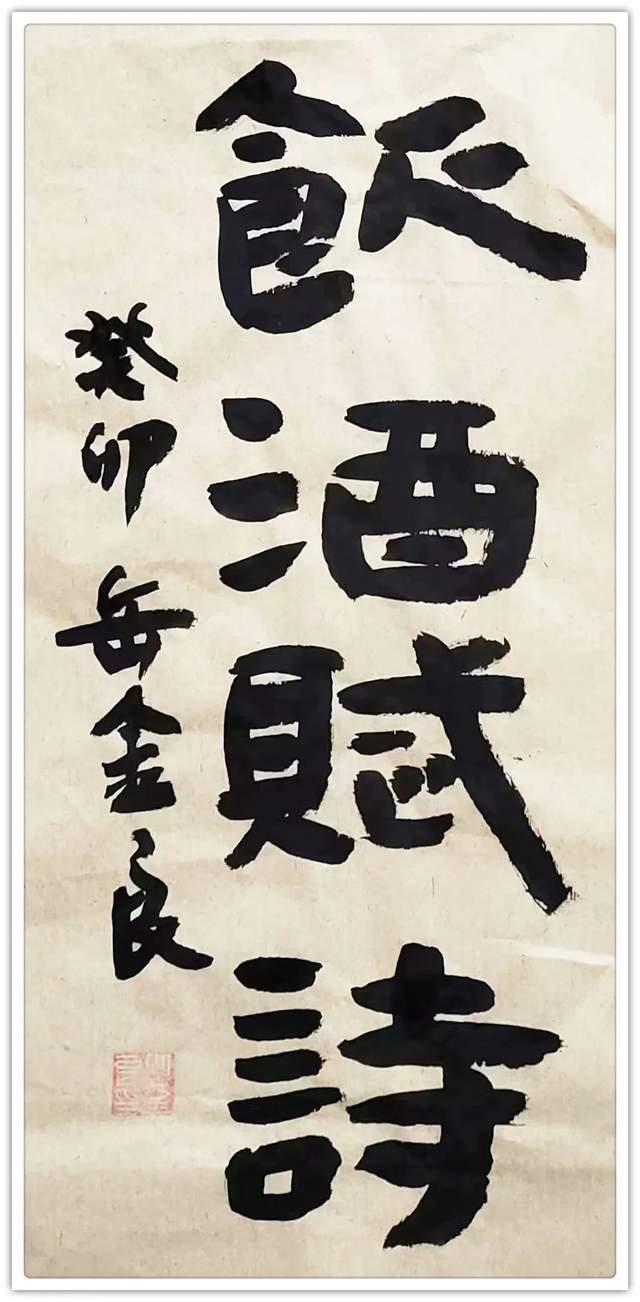 飲酒賦詩
癸卯岳金良